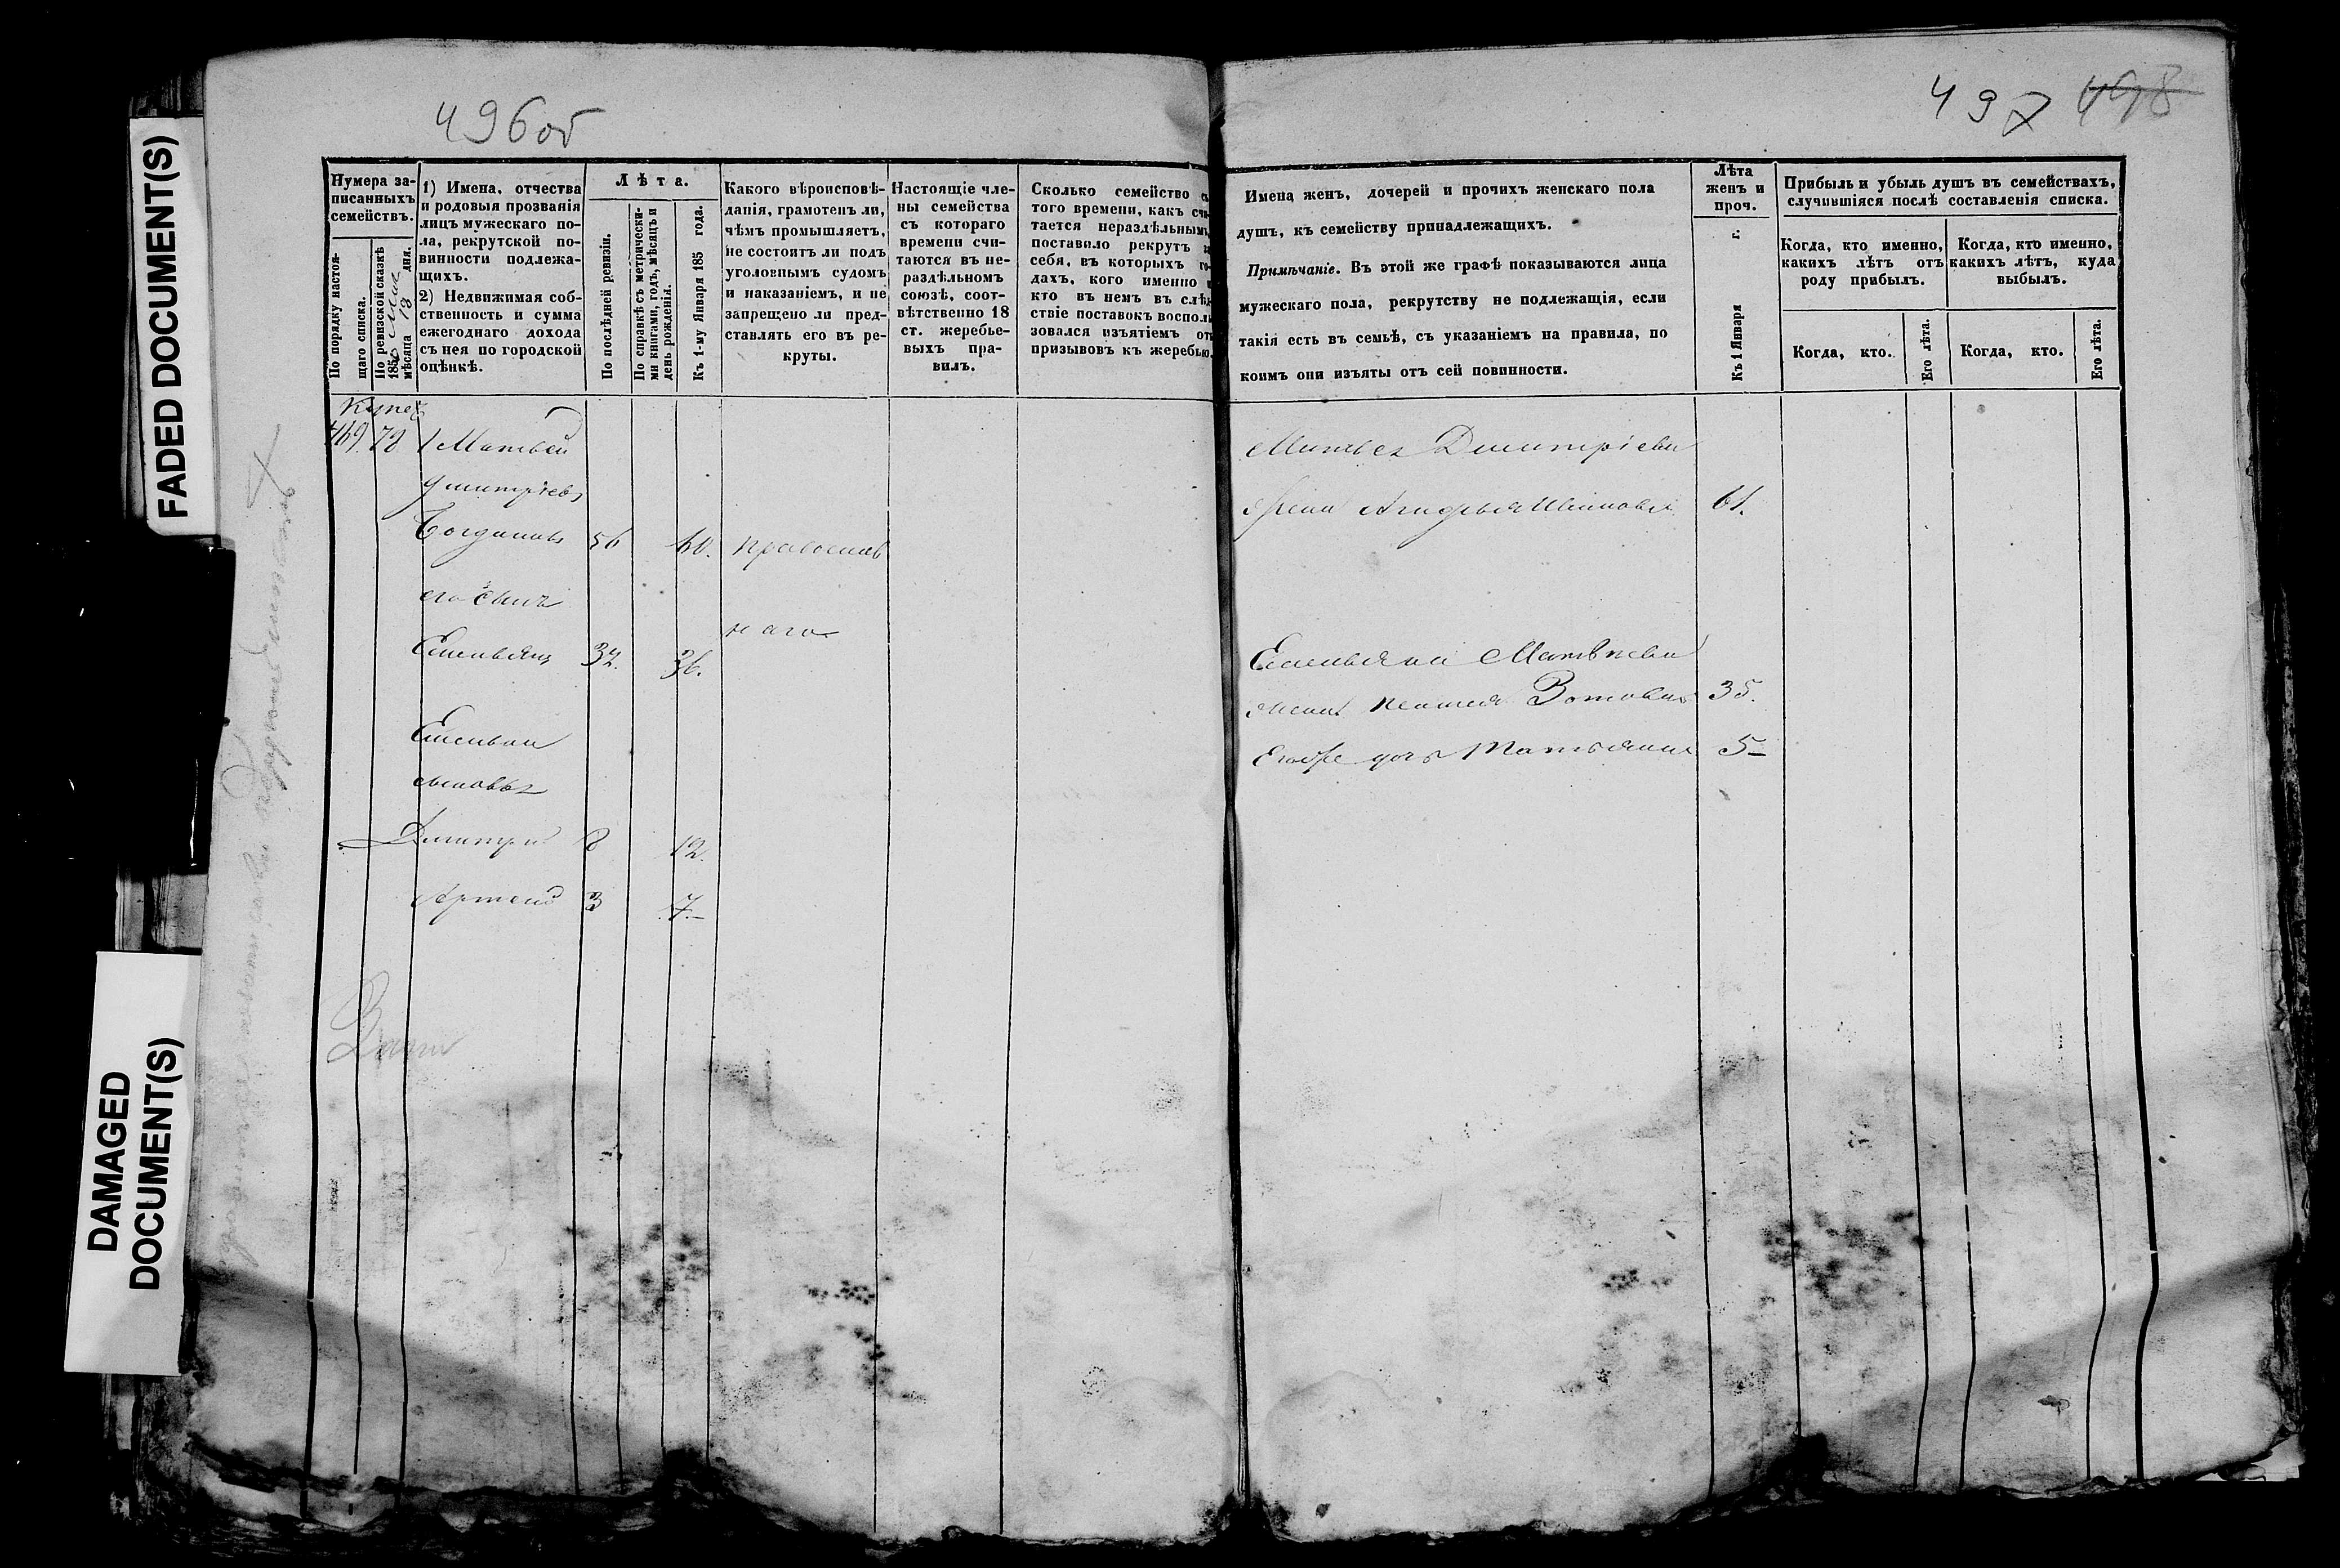 FADED DOCUMENT(S)
DAMAGED
DOCUMENT(S)
496об
Нумера за-
писанныхъ
семействъ.
По порядку настоя-
щаго списка.
По ревизской сказкѣ
185 мѣсяца 18 дня.
1) Имена, отчества
и родовыя прозванія
лицъ мужескаго по-
ла, рекрутской по-
винности подлежа-
щихъ.
2) Недвижимая соб-
ственность и сумма
ежегоднаго дохода
съ нея по городской
оцѣнкѣ.
Лѣта.
По послѣдней ревизіи.
По справкѣ съ метрически-
ми книгами, годъ, мѣсяцъ и
день рожденія.
Къ 1-му Января 185 года.
Какого вѣроисповѣ-
данія, грамотенъ ли,
чѣмъ промышляетъ,
не состоитъ ли подъ
уголовнымъ судомъ
и наказаніемъ, и не
запрещено ли пред-
ставлять его въ ре-
круты.
Настоящіе чле-
ны семейства
съ котораго
времени счи-
таются въ не-
раздѣльномъ
союзѣ, соот-
вѣтственно 18
ст. жеребье-
выхъ пра-
вилъ.
Сколько семейство съ
того времени, какъ счи-
тается нераздѣльнымъ,
поставило рекрутъ за
себя, въ которыхъ го-
дахъ, кого именно и
кто въ немъ въ слѣд-
ствіе поставокъ восполь-
зовался изъятіемъ отъ
призывовъ къ жеребью.
Купец
469. 78 1 Матвей
Дмитріевъ
Богдановъ 56 60. православ
его сынъ
наго
Емельянъ 32. 36.
Емельян
сыновья
Дмитри 8 12.
Артемй 3 7.
497 498
Имена женъ, дочерей и прочихъ женскаго пола
душъ, къ семейству принадлежащихъ.
Примѣчаніе. Въ этой же графѣ показываются лица
мужескаго пола, рекрутству не подлежащія, если
такія есть въ семьѣ, съ указаніемъ на правила, по
коимъ они изъяты отъ сей повинности.
Лѣта
женъ и
проч.
Къ 1 Января г.
Прибыль и убыль душъ въ семействахъ,
случившіяся послѣ составленія списка.
Когда, кто именно,
какихъ лѣтъ отъ
роду прибылъ.
Когда, кто именно,
какихъ лѣтъ, куда
выбылъ.
Когда, кто.
Его лѣта.
Когда, кто.
Его лѣта.
Матвея Дмитріева
жена Ивановна 61.
Емельяна Матвѣева
жена Зотовна 35.
Егоже дочь Татьянна 5